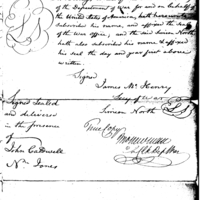 of the Department of War for and on behalf of
the United States of America, hath hereunto
subscribed his name, and affixed the seal
of the war office; and the said Simeon North
hath also subscribed his name & affixed
his seal the day and year first above
written
Signed
James McHenry
Secy of War
Simeon North
Signed Sealed
and delivered
in the presence
of
John Caldwell
Wm Jones
True Copy